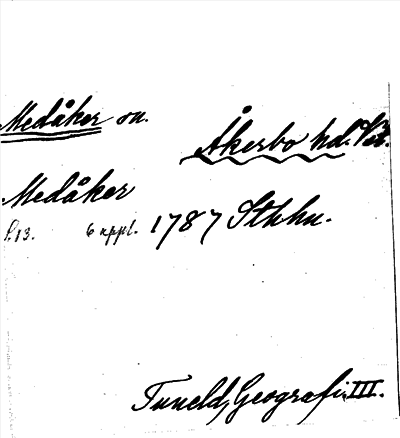 Medåker sn.
Åkerbo hd. Vstm.
Medåker
s. 13. 6 uppl. 1787 Sthlm.
Tuneld, Geografi III.